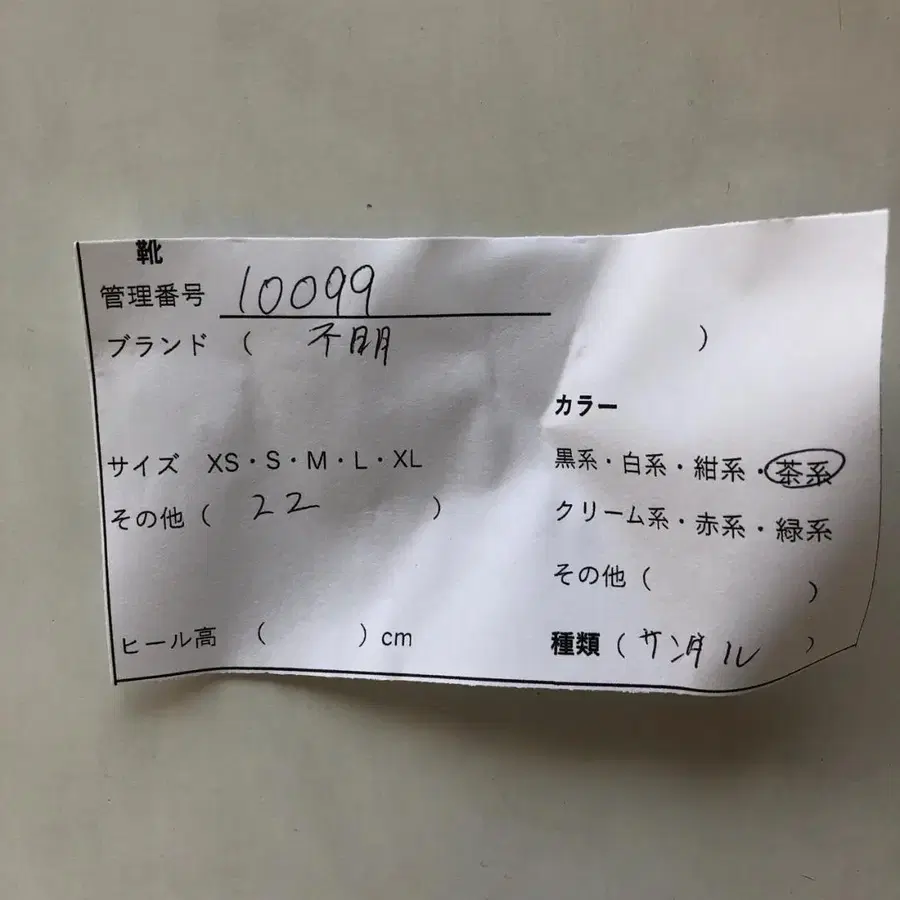 靴
管理番号 10099
ブランド ( 不明 )
カラー
サイズ XS・S・M・L・XL
黒系・白系・紺系・茶系
その他 ( 22 )
クリーム系・赤系・緑系
その他 ( )
ヒール高 ( ) cm
種類 ( サンダル )